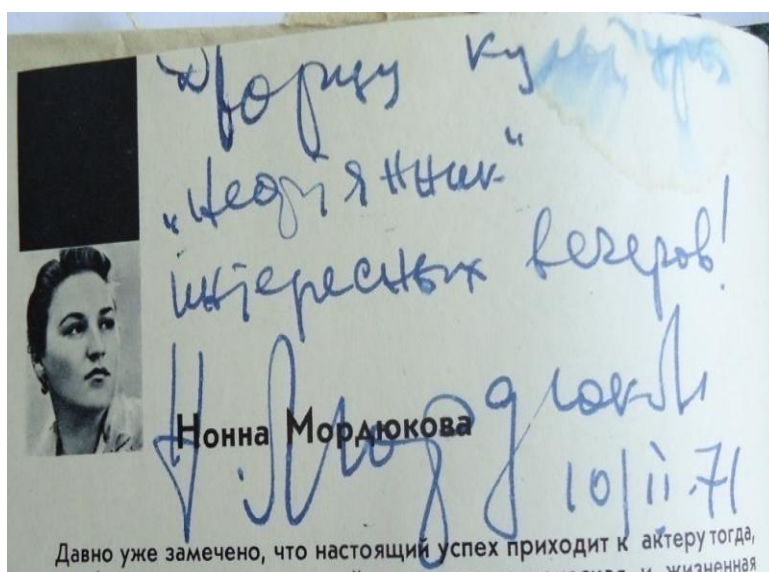 Дворцу культуры
„Нефтяник“
интересных вечеров!
Н. Мордюкова
Нонна Мордюкова
10/II.71
Давно уже замечено, что настоящий успех приходит к актеру тогда,
и жизненная